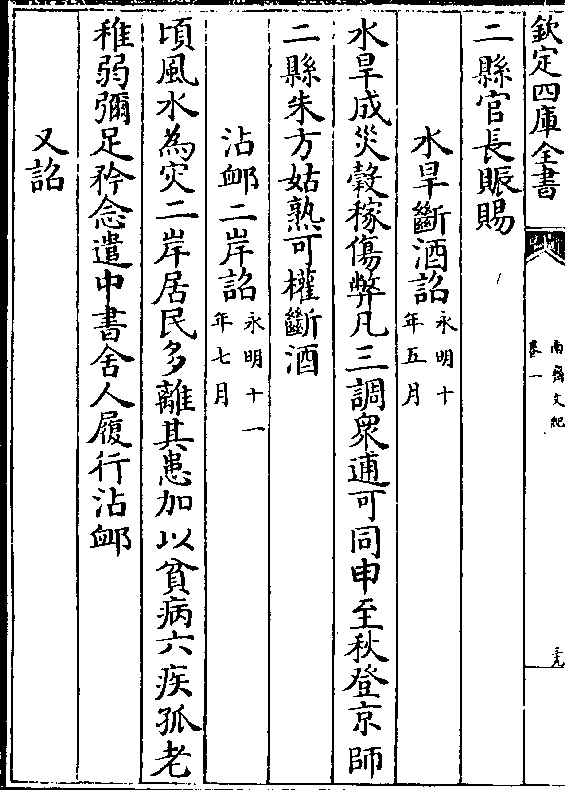 欽定四庫全書
南齊文紀
卷一
二縣官長賑賜
水旱斷酒詔永明十
年五月
水旱成災穀稼傷弊凡三調衆逋可同申至秋登京師
二縣朱方姑熟可權斷酒
沾卹二岸詔永明十一
年七月
頃風水為灾二岸居民多離其患加以貧病六疾孤老
稚弱彌足矜念遣中書舍人履行沾卹
又詔